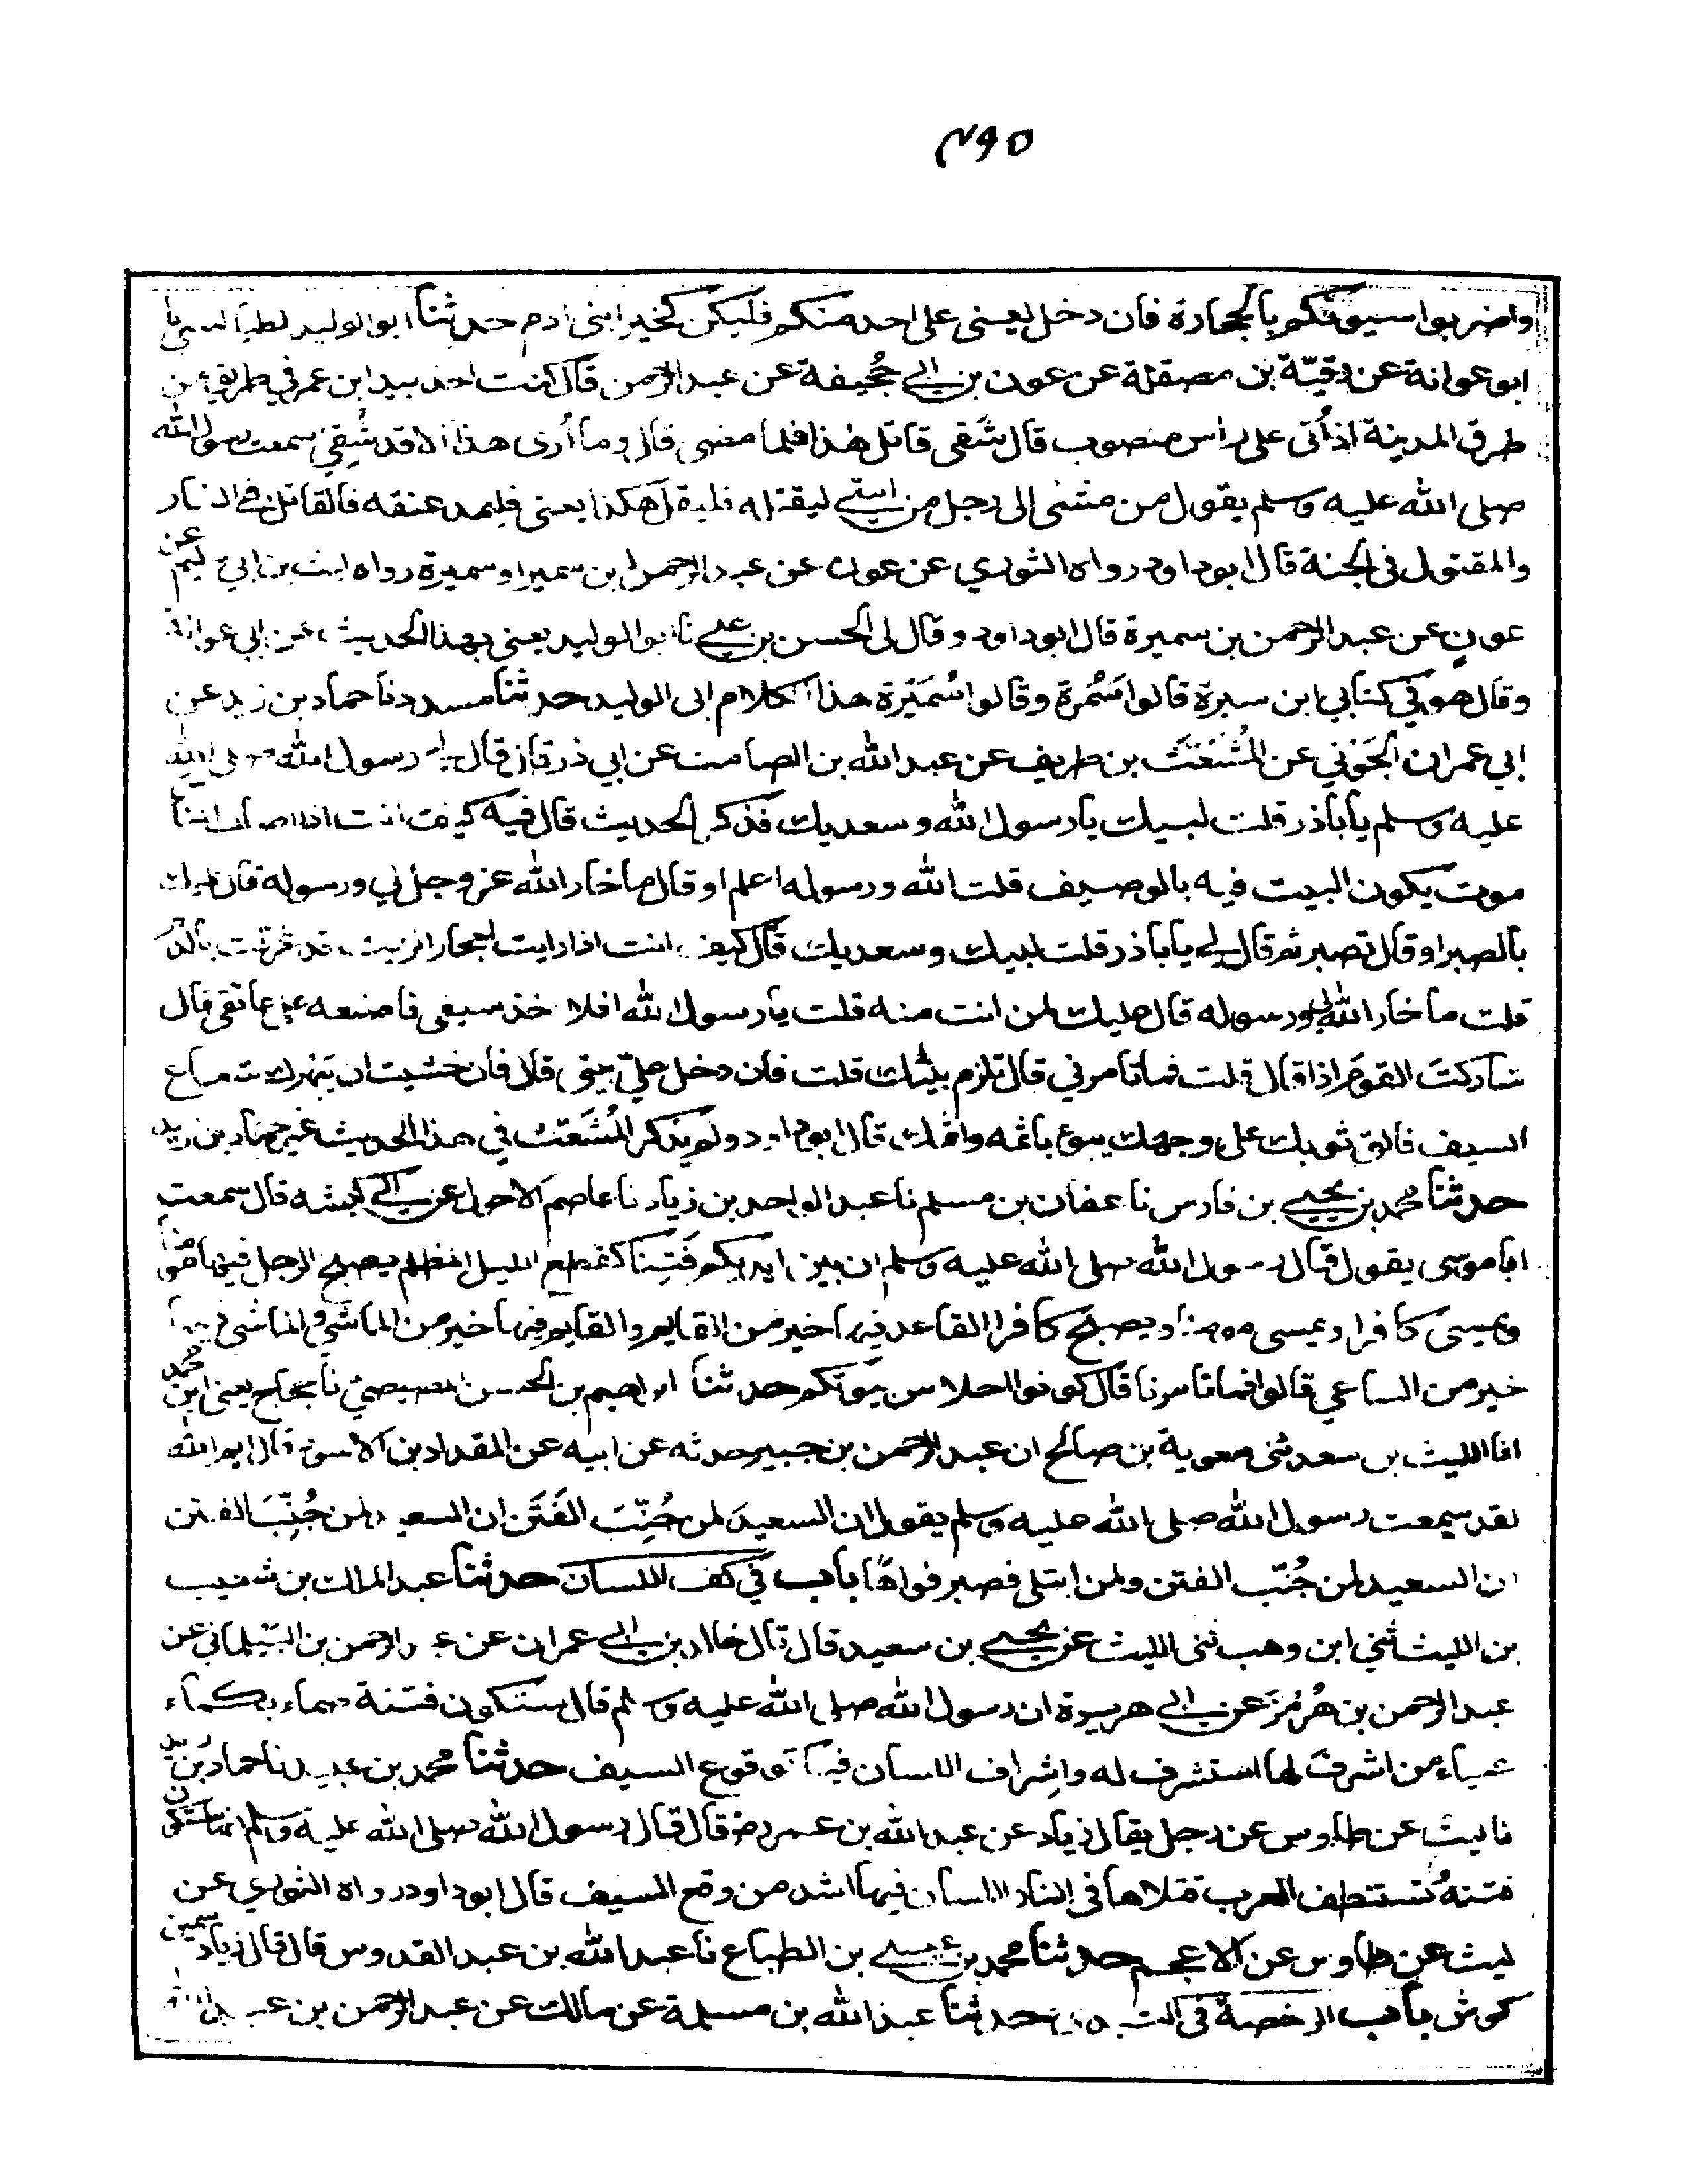 واضربوا سيوفكم بالحجارة فان دخل يعني على احد منكم فليكن كخير ابني ادم حدثنا ابو الوليد الطيالسي نا
ابو عوانة عن رقبة بن مصقلة عن عون بن ابي جحيفة عن عبد الرحمن قال كنت اخذ بيد ابن عمر في طريق من
طرق المدينة اذ أتى على راس منصوب قال شقى قاتل هذا فلما مضى قال وما أرى هذا الا قد شقي سمعت رسول الله
صلى الله عليه وسلم يقول من مشى الى رجل من امتي ليقتله فليقل هكذا يعني فليمد عنقه فالقاتل في النار
والمقتول في الجنة قال ابو داود رواه الثوري عن عون عن عبد الرحمن ابن سمير او سميرة رواه ليث بن ابي سليم عن
عون عن عبد الرحمن بن سميرة قال ابو داود وقال لى الحسن بن علي نا ابو الوليد يعني بهذا الحديث عن ابي عوانة
وقال هو في كتابي ابن سبرة قالوا سمرة وقالوا سميرة هذا الكلام ابى الوليد حدثنا مسدد نا حماد بن زيد عن
ابي عمران الجوني عن المشعث بن طريف عن عبد الله بن الصامت عن ابي ذر قال قال لي رسول الله صلى الله
عليه وسلم يا باذر قلت لبيك يا رسول الله وسعديك فذكر الحديث قال فيه كيف انت اذا اصاب الناس
موت يكون البيت فيه بالوصيف قلت الله ورسوله اعلم او قال ما خار الله عز وجل لي ورسوله قال عليك
بالصبر او قال تصبر ثم قال لي يا باذر قلت لبيك وسعديك قال كيف انت اذا رايت احجار الزيت قد غرقت بالدم
قلت ما خار الله لي ورسوله قال عليك لمن انت منه قلت يا رسول الله افلا اخذ سيفي فاضعه على عاتقي قال
شاركت القوم اذا قال قلت فما تامرني قال تلزم بيتك قلت فان دخل علي بيتي قال فان خشيت ان يبهرك شعاع
السيف فالق ثوبك على وجهك يبوء باثمه واثمك قال ابو داود ولم يذكر المشعث في هذا الحديث غير حماد بن زيد
حدثنا محمد بن يحيى بن فارس نا عفان بن مسلم نا عبد الواحد بن زياد نا عاصم الاحول عن ابي كبشه قال سمعت
ابا موسى يقول قال رسول الله صلى الله عليه وسلم ان بين ايديكم فتنا كقطع الليل المظلم يصبح الرجل فيها مؤمنا
ويمسى كافرا ويمسى مومنا ويصبح كافرا القاعد فيها خير من القايم والقايم فيها خير من الماشي والماشي فيها
خير من الساعي قالوا فما تامرنا قال كونوا احلاس بيوتكم حدثنا ابراهيم بن الحسن المصيصي نا حجاج يعني ابن محمد
انا الليث بن سعد ثني معوية بن صالح ان عبد الرحمن بن جبير حدثه عن ابيه عن المقداد بن الاسود قال ايم الله
لقد سمعت رسول الله صلى الله عليه وسلم يقول ان السعيد لمن جنب الفتن ان السعيد لمن جنب الفتن
ان السعيد لمن جنب الفتن ولمن ابتلي فصبر فواها باب في كف اللسان حدثنا عبد الملك بن شعيب
بن الليث ثني ابن وهب ثني الليث عن يحيى بن سعيد قال قال خالد بن ابي عمران عن عبد الرحمن بن البيلماني عن
عبد الرحمن بن هرمز عن ابي هريرة ان رسول الله صلى الله عليه وسلم قال ستكون فتنة صماء بكماء
عمياء من اشرف لها استشرف له واشراف اللسان فيها كوقوع السيف حدثنا محمد بن عبيد نا حماد بن زيد
نا ليث عن طاوس عن رجل يقال زياد عن عبد الله بن عمر رض قال قال رسول الله صلى الله عليه وسلم انها ستكون
فتنة تستنظف العرب قتلاها في النار اللسان فيها اشد من وقع السيف قال ابو داود رواه الثوري عن
ليث عن طاوس عن الاعجم حدثنا محمد بن عيسى بن الطباع نا عبد الله بن عبد القدوس قال قال زياد سمين
كوش باب الرخصة في التبدى حدثنا عبد الله بن مسلمة عن مالك عن عبد الرحمن بن عبد الله